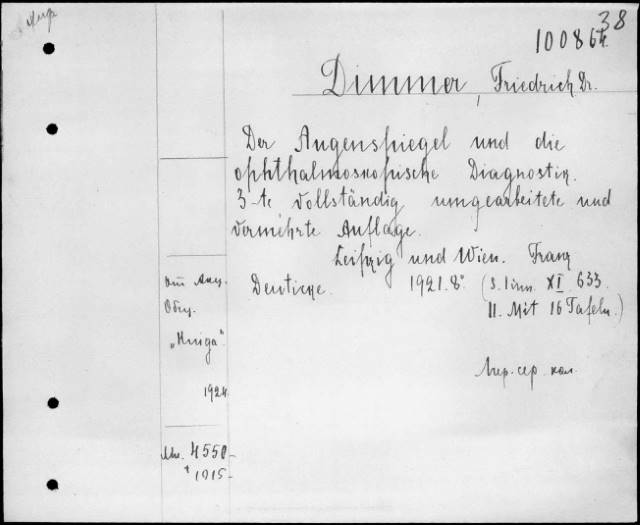 38
10086
Dimmer, Friedrich Dr.
Der Augenspiegel und die
ophthalmoskopische Diagnostik.
3-te vollständig umgearbeitete und
vermehrte Auflage.
Leipzig und Wien. Franz
Deuticke. 1921. 8° (S. XI. 633.
II. Mit 16 Tafeln.)
„Книга“.
1924
4550-
1915-